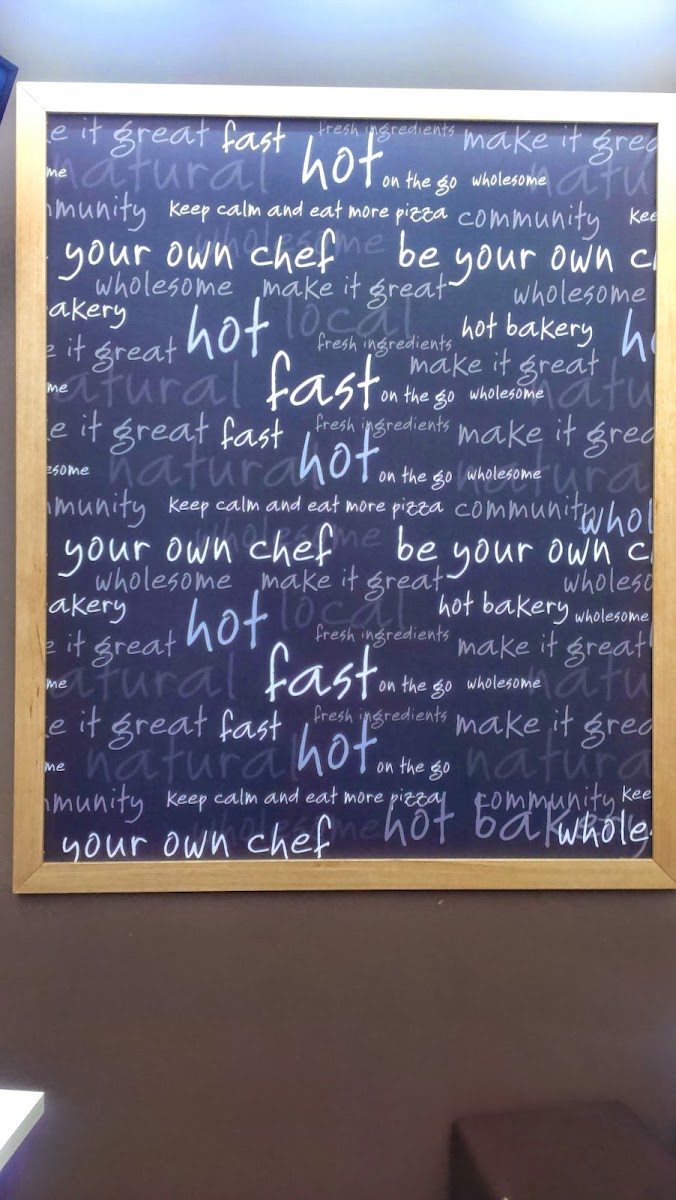 e it great fast fresh ingredients make it grea
natural hot natu
me on the go wholesome
mmunity keep calm and eat more pizza community kee
your own chef wholesome be your own c
wholesome make it great wholesome
akery hot local hot bakery h
e it great fresh ingredients make it great
me natural fast on the go wholesome natu
e it great fast fresh ingredients make it grea
esome natural hot on the go wholesome natural
mmunity keep calm and eat more pizza community whol
your own chef wholesome be your own c
wholesome make it great wholeso
akery hot local hot bakery wholesome
e it great fresh ingredients make it great
me natural fast on the go wholesome natu
e it great fast fresh ingredients make it grea
me natural hot on the go natural
mmunity keep calm and eat more pizza community kee
your own chef wholesome hot bakery whole